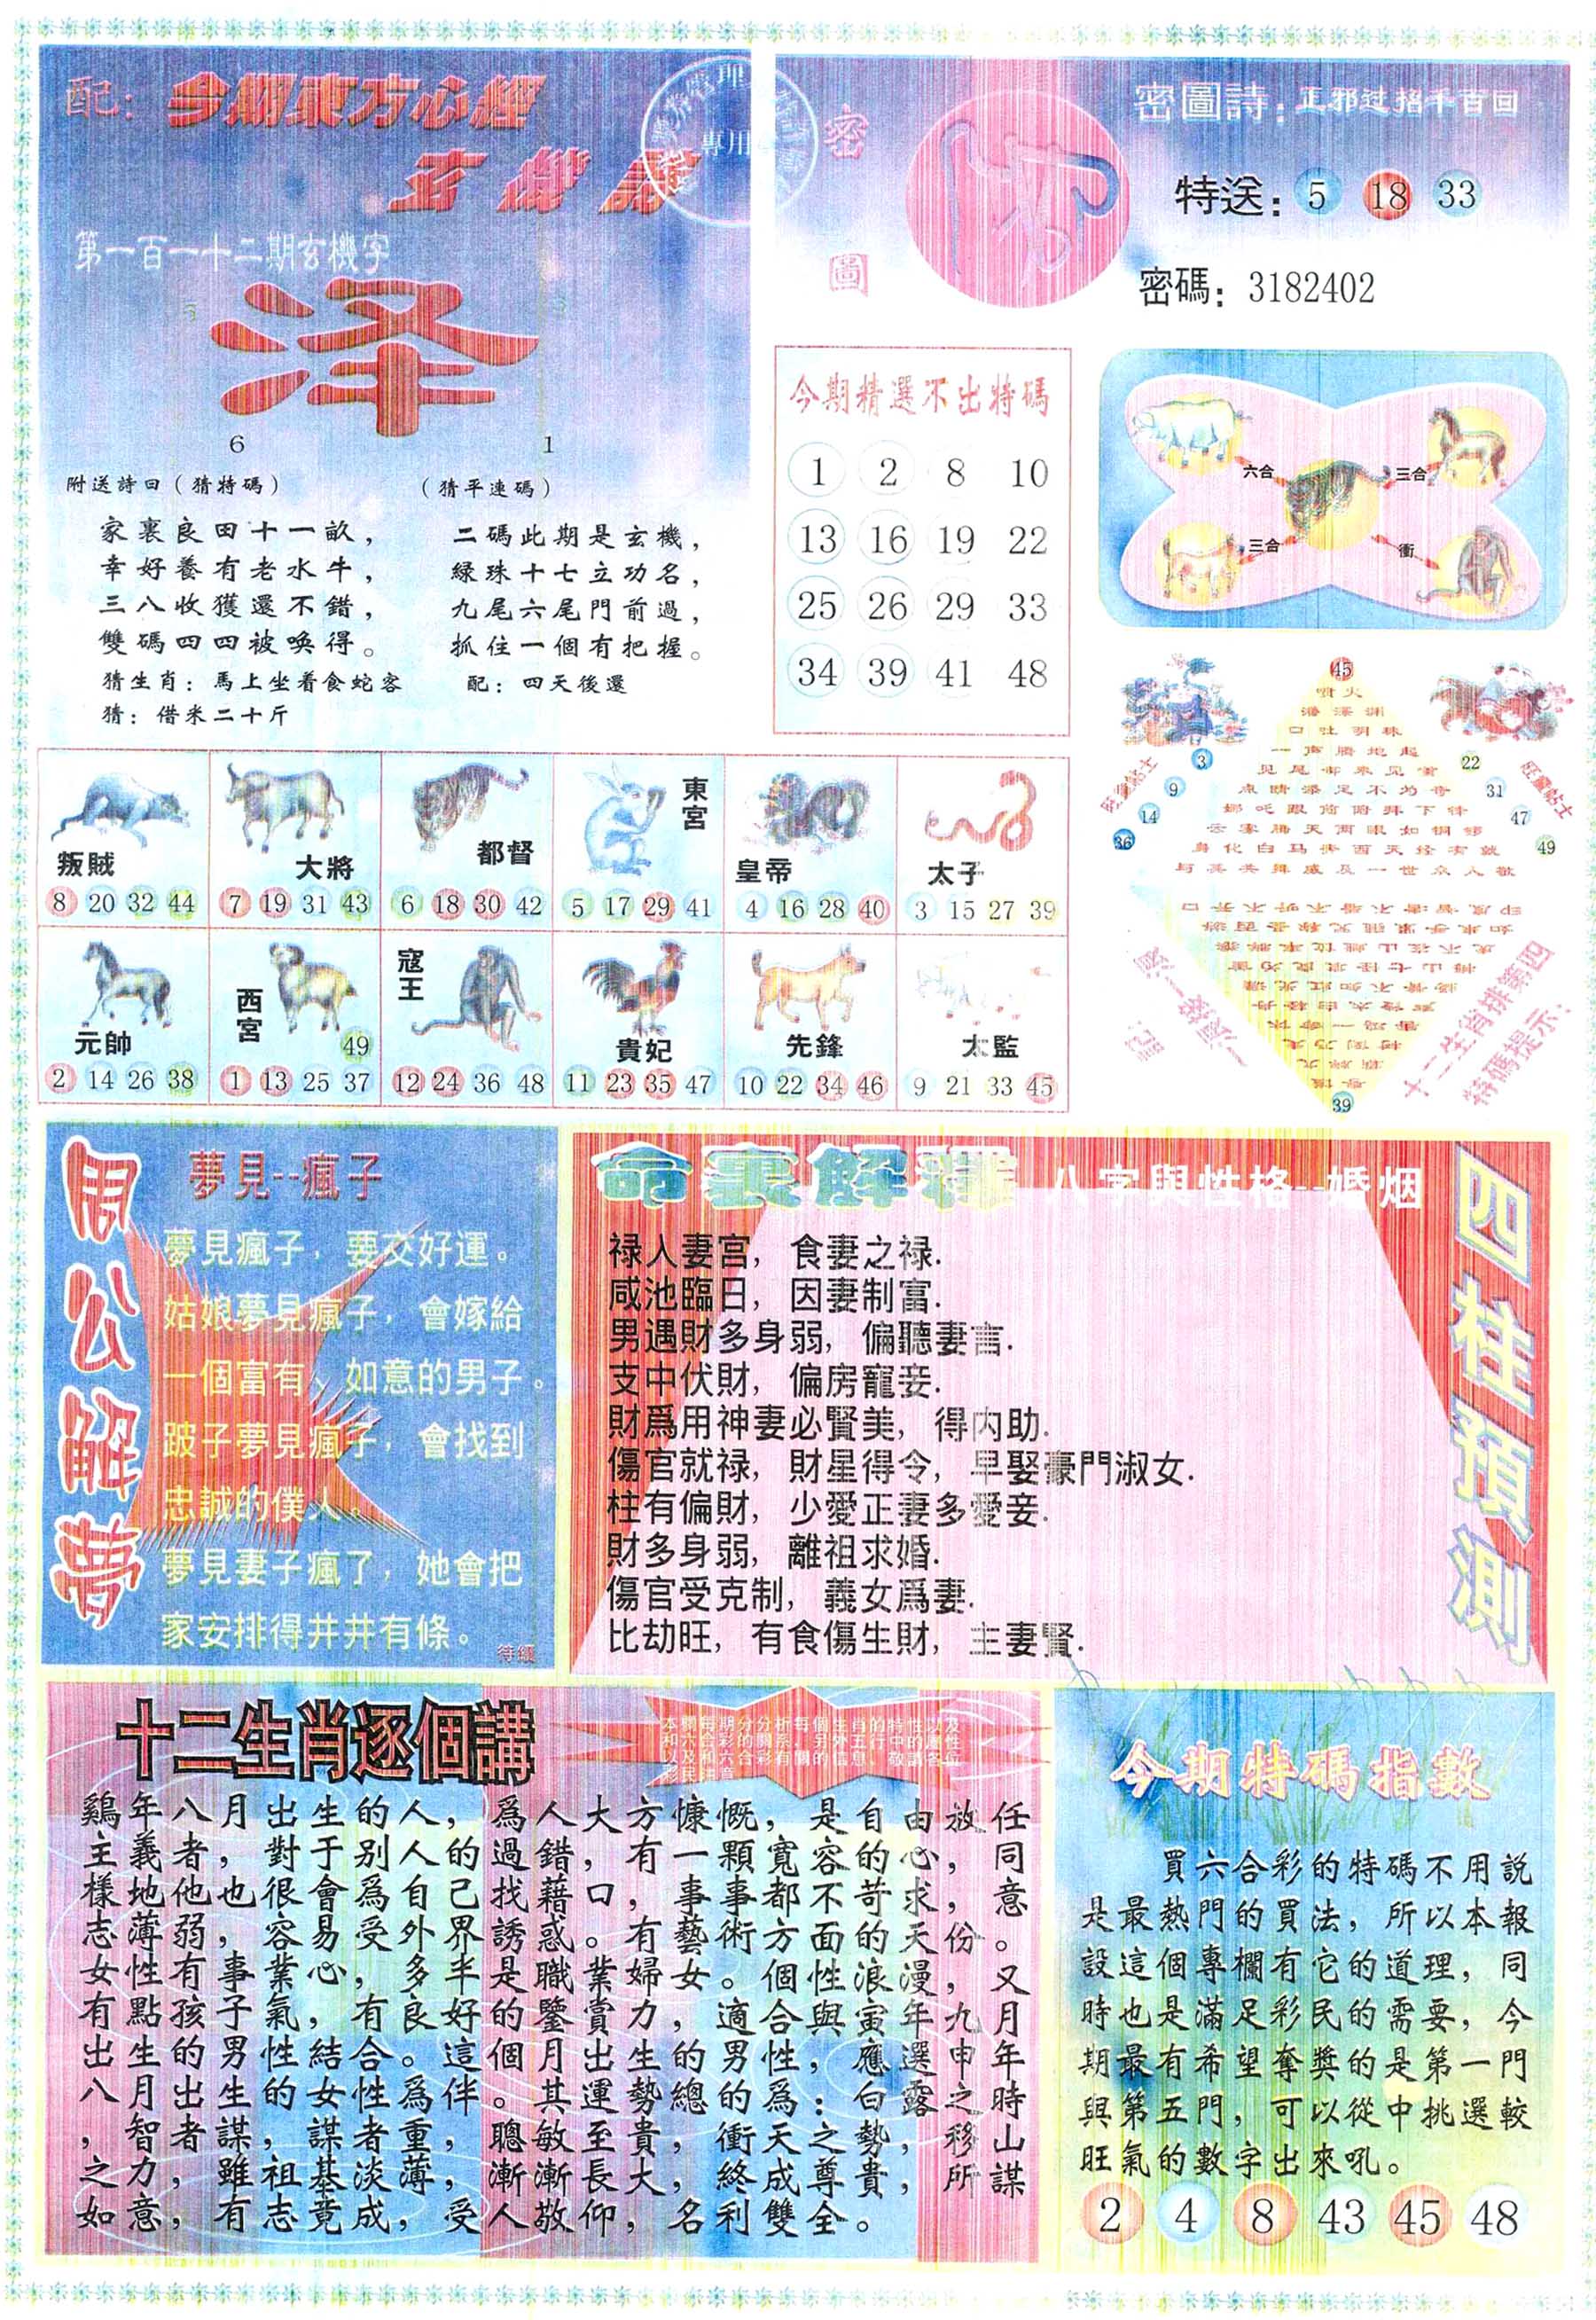 配：今期東方心經
玄機
專用
第一百一十二期玄機字
泽
6 1
附送詩曰（猜特碼）
家裏良田十一畝，
幸好養有老水牛，
三八收獲還不錯，
雙碼四四被喚得。
猜生肖：馬上坐着食蛇客
猜：借米二十斤
（猜平連碼）
二碼此期是玄機，
緑珠十七立功名，
九尾六尾門前過，
抓住一個有把握。
配：四天後還
密圖
密圖詩：正邪过招千百回
特送：5 18 33
密碼：3182402
今期精選不出特碼
1 2 8 10
13 16 19 22
25 26 29 33
34 39 41 48
六合 三合
三合 衝
45
喷火
口吐明珠
一声腾地起
3 22
9 31
14 47
36 49
十二生肖排第四
特碼提示：
39
叛賊
8 20 32 44
大將
7 19 31 43
都督
6 18 30 42
東宮
5 17 29 41
皇帝
4 16 28 40
太子
3 15 27 39
元帥
2 14 26 38
西宮
49
1 13 25 37
寇王
12 24 36 48
貴妃
11 23 35 47
先鋒
10 22 34 46
太監
9 21 33 45
周公解夢
夢見--瘋子
夢見瘋子，要交好運。
姑娘夢見瘋子，會嫁給
一個富有、如意的男子。
跛子夢見瘋子，會找到
忠誠的僕人。
夢見妻子瘋了，她會把
家安排得井井有條。
待續
命裏解釋 八字與性格--婚烟
四柱預測
禄人妻宫，食妻之禄.
咸池臨日，因妻制富.
男遇財多身弱，偏聽妻言.
支中伏財，偏房寵妾.
財爲用神妻必賢美，得内助.
傷官就禄，財星得令，早娶豪門淑女.
柱有偏財，少愛正妻多愛妾.
財多身弱，離祖求婚.
傷官受克制，義女爲妻.
比劫旺，有食傷生財，主妻賢.
十二生肖逐個講
本欄每期分分析每個生肖的特性以及
和六合彩的關系，另外五行中的屬性
以及和六合彩有關的信息！敬請各位
彩民注意
鷄年八月出生的人，爲人大方慷慨，是自由放任
主義者，對于别人的過錯，有一顆寬容的心，同
樣地他也很會爲自己找藉口，事事都不苛求，意
志薄弱，容易受外界誘惑。有藝術方面的天份。
女性有事業心，多半是職業婦女。個性浪漫，又
有點孩子氣，有良好的鑒賞力，適合與寅年九月
出生的男性結合。這個月出生的男性，應選申年
八月出生的女性為伴。其運勢總的為：白露之時
，智者謀，謀者重，聰敏至貴，衝天之勢，移山
之力，雖祖基淡薄，漸漸長大，終成尊貴，所謀
如意，有志竟成，受人敬仰，名利雙全。
今期特碼指數
買六合彩的特碼不用説
是最熱門的買法，所以本報
設這個專欄有它的道理，同
時也是滿足彩民的需要，今
期最有希望奪獎的是第一門
與第五門，可以從中挑選較
旺氣的數字出來吼。
2 4 8 43 45 48